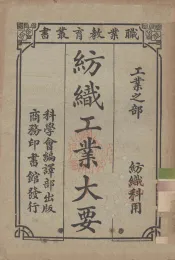 職業教育叢書
工業之部
紡織科用
紡織工業大要
科學會編譯部出版
商務印書館發行